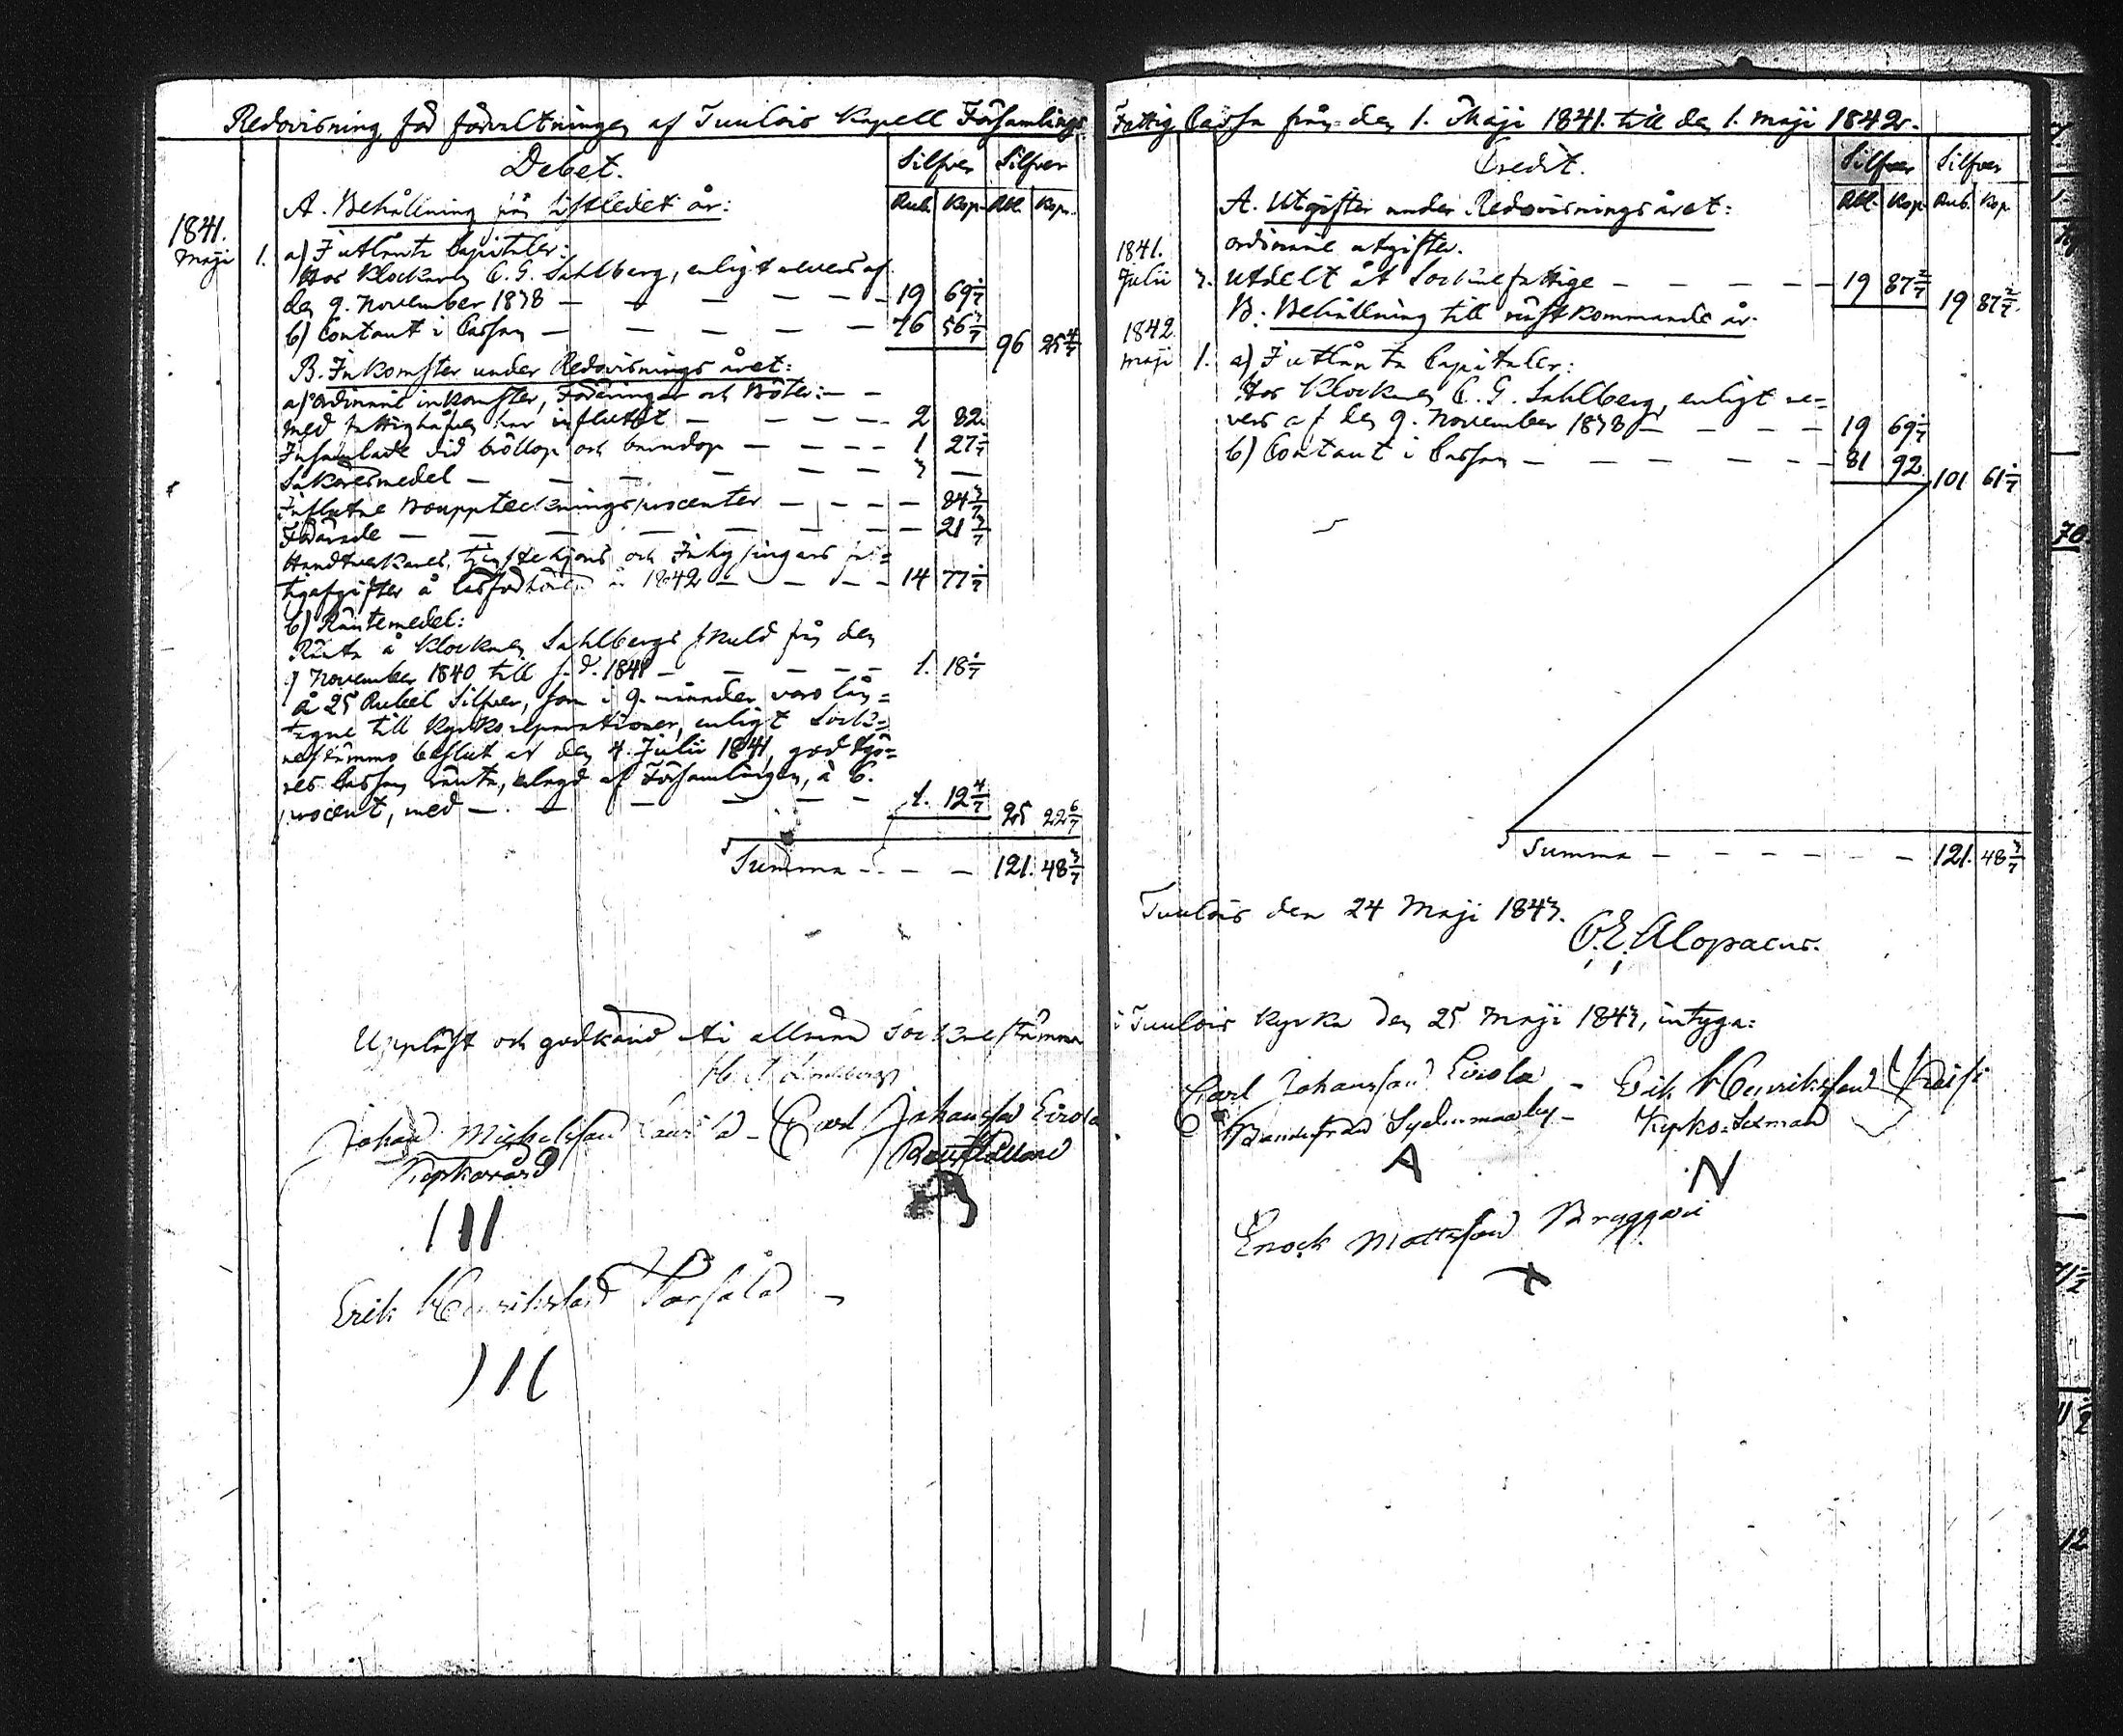 Redovisning för förvaltningen af Tuulois Kapell Församlings
Debet.
Silfver Silfver
Rub. Kop. Rbl. Kop.
A. Behållning från sistledet år:
1841.
Maji 1. a) I utlånta Capitaler:
Hos Klockaren C. G. Sahlberg, enligt revers af
den 9. November 1838 — 19 69 1/7
b) Contant i Cassan — 76 56 3/7
96 25 4/7
B. Inkomster under Redovisnings året:
a) ordinarie inkomster, Foderingar och Böter:
med fattighåfven har influtit — 2 82
Insamlade vid bröllop och barndop — 1 27 1/7
Sakoresmedel — 3 —
Influtne Bouppteckningsprocenter — 84 3/7
Förärade — 21 3/7
Handtverkares, tjenstehjons och Inhysingars fat=
tigafgifter å 1842 — 14 77 1/7
b) Räntemedel:
Ränta å Klockaren Sahlbergs skuld från den
9 November 1840 till s. d. 1841 — 1. 18 1/7
å 25 Rubel Silfver, som i 9. månader varo lån=
tagne till Kyrkoreparationer, enligt Sock=
nestämmo beslut af den 4. Julii 1841, godtgö=
res Cassan ränta, erlagd af Församlingen, à 6.
procent, med — 1. 12 4/7
25 22 6/7
Summa — 121. 48 3/7
Uppläst och godkänd uti allmän Sockenestämma
Johan Michelsson - Carl Johansson Eerola
Kyrkovärd Rusthållare
Erik Henriksson -
Fattig Cassa från den 1. Maji 1841. till den 1. Maji 1842.
Credit.
Silfver Silfver
Rbl. Kop. Rub. Kop.
A. Utgifter under Redovisningsåret:
1841. ordinarie utgifter.
Julii 3. Utdelt åt Sockne fattige — 19 87 2/7
19 87 2/7
B. Behållning till näst kommande år.
1842
Maji 1. a) I utlånta Capitaler:
Hos Klockaren C. G. Sahlberg, enligt re=
vers af den 9. November 1838 — 19 69 1/7
b) Contant i Cassan — 81 92
101 61 1/7
Summa — 121. 48 3/7
Tuulois den 24 Maji 1843.
C. E. Alopaeus.
i Tuulois Kyrka den 25 Maji 1843, intyga:
Carl Johansson Eerola - Erik Henriksson
Kyrko-Sexman
A N
Enock Mattsson Bryggari
X